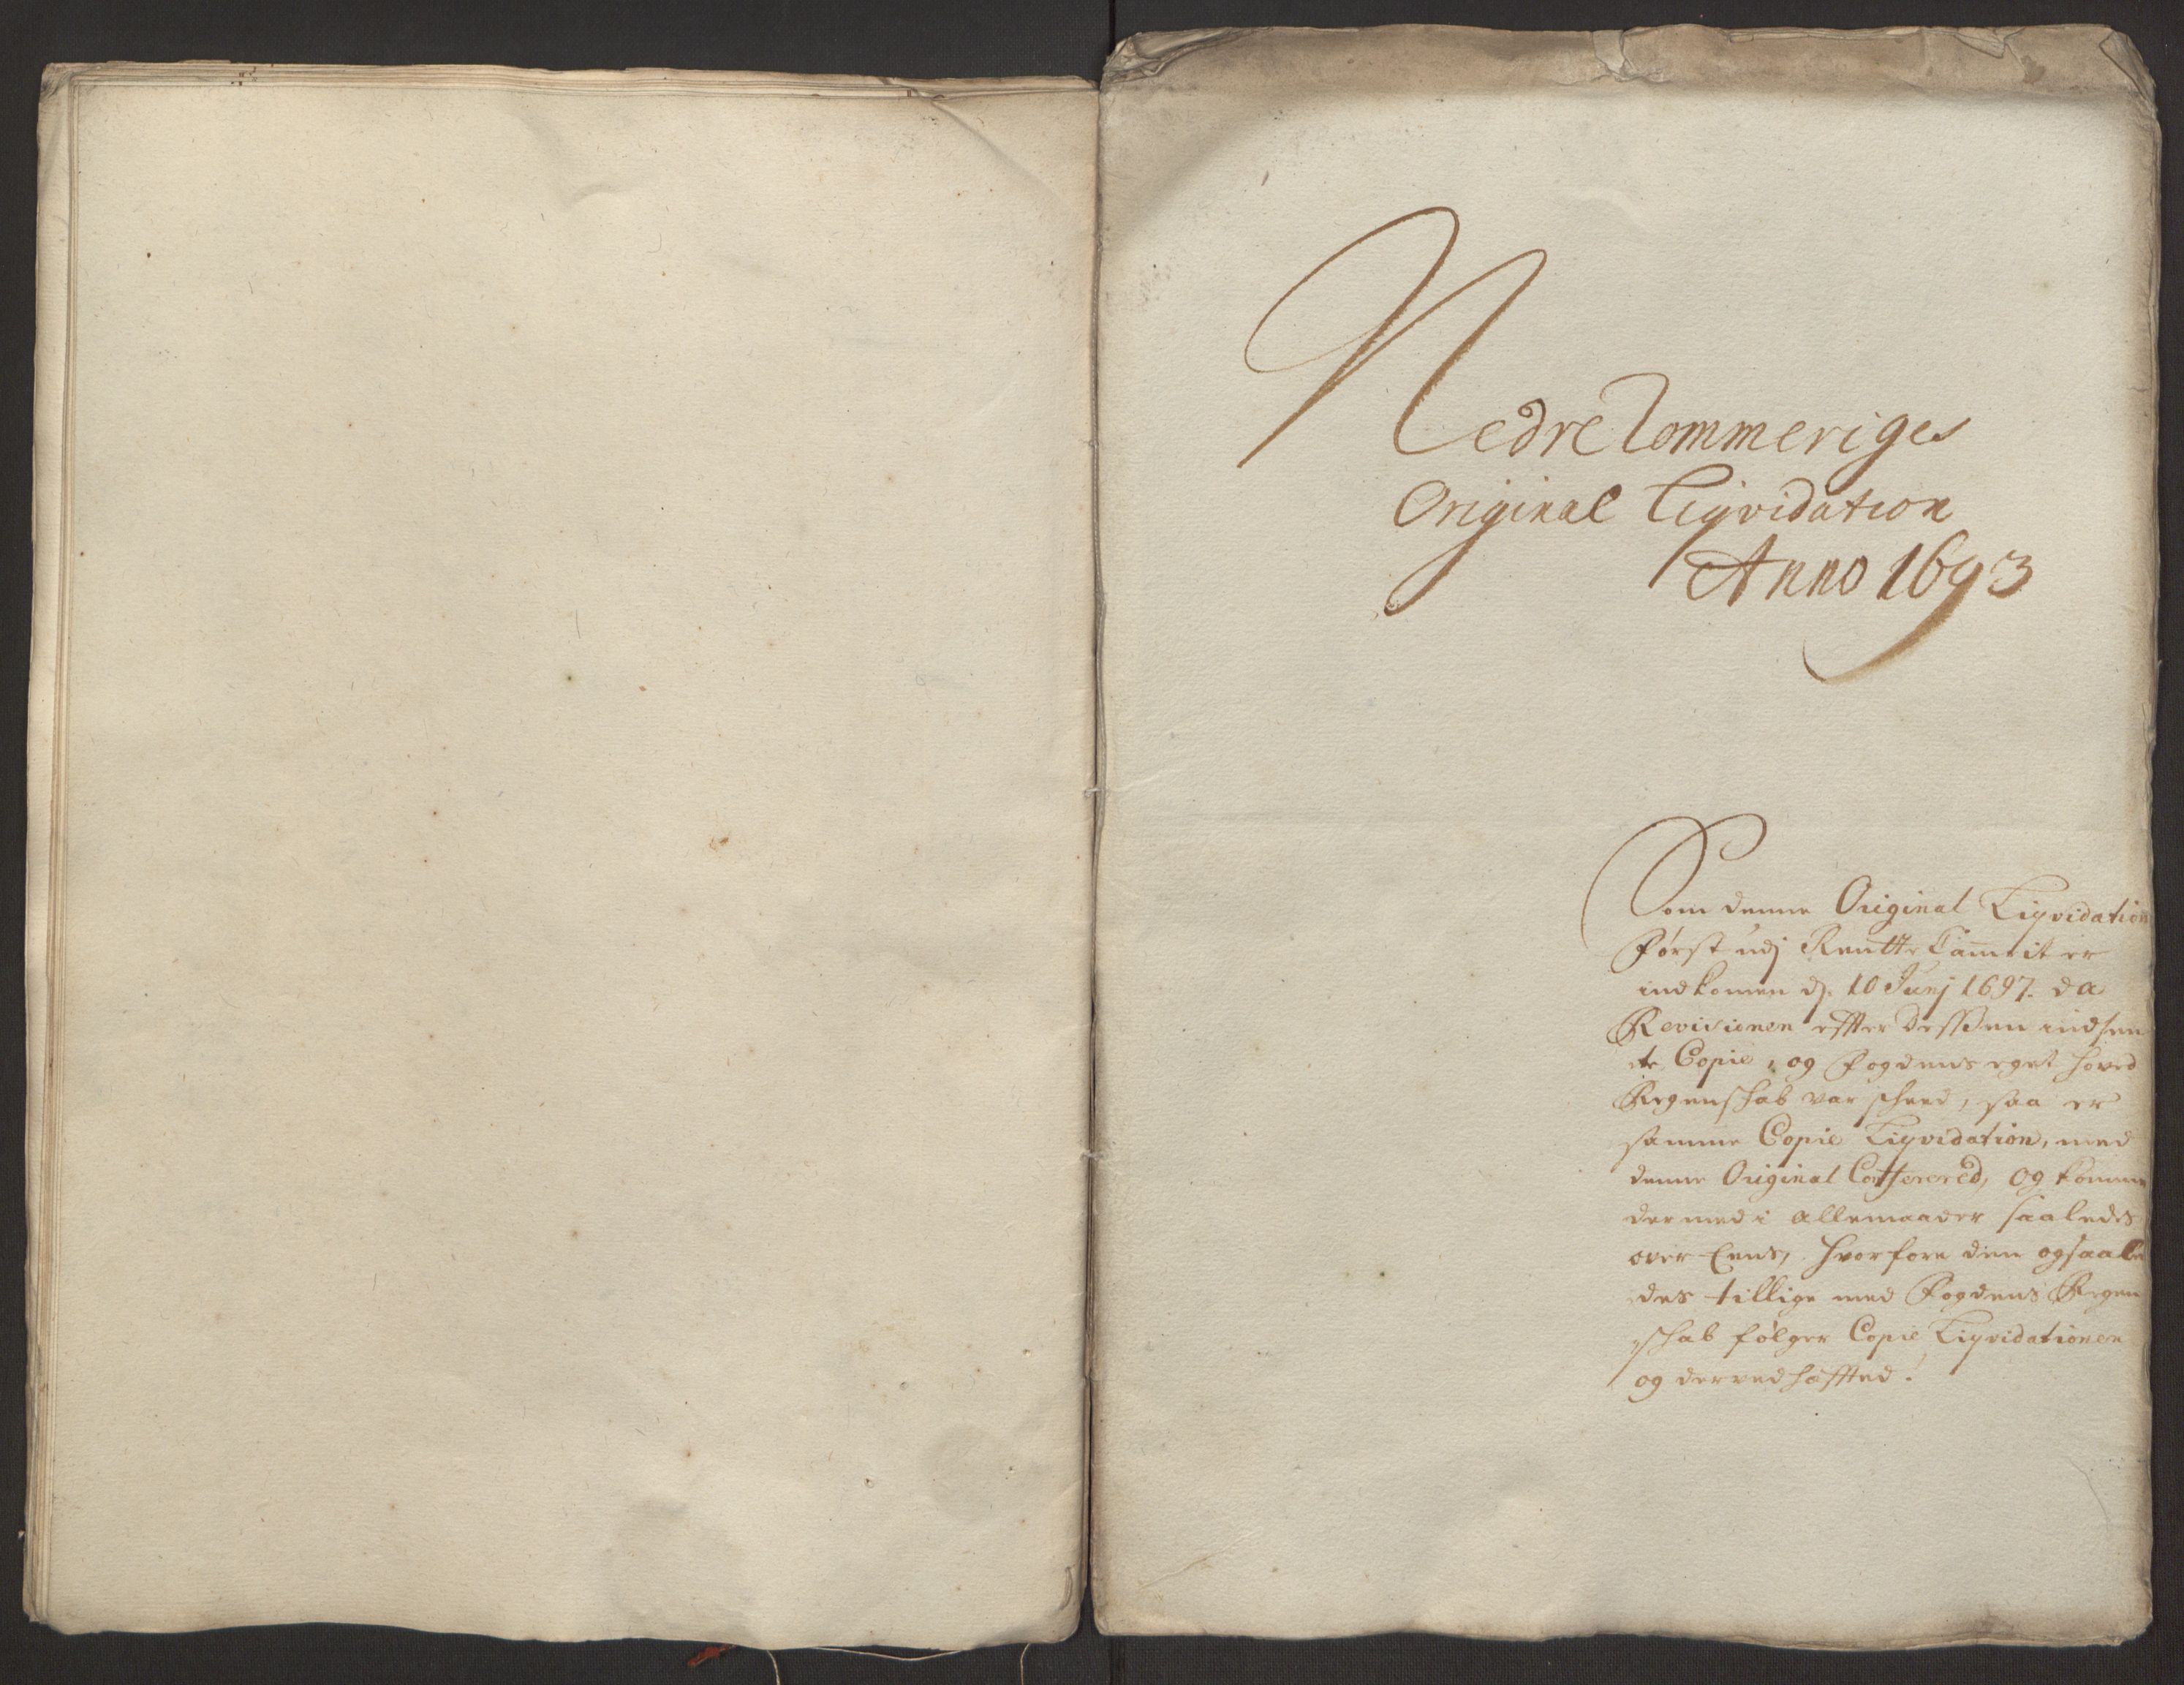 Nedre Rommeriges
Original Liqvidation
Anno 1693
Som denne Original Liqvidation
Først udj Rentte Camerit er
indkomen dj. 10 Junj 1697. da
Revisionen effter dessen indsen
te Copie, og Fogdens eget hoved
Regenschab var scheed, saa er
samme Copie Liqvidation, med
denne Original Conferered, og komme
dermed i allemaader saaledes
over Eens, hvorfore den ogsaale
des tillige med Fogdens Regen
schab følger Copie Liqvidationen
og derved hæffted!